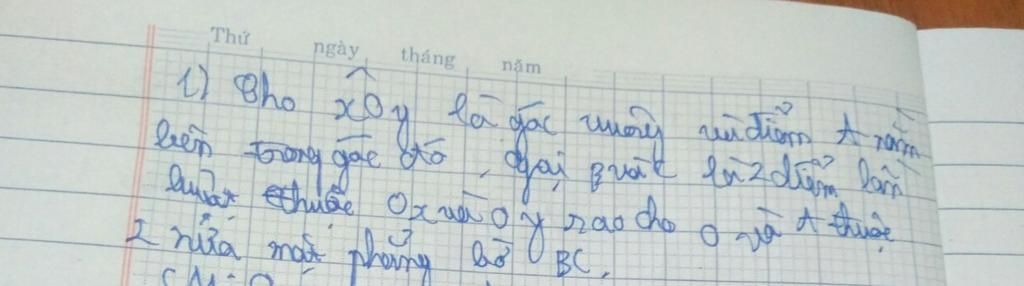 Thứ ngày tháng năm
1) Cho xOy là góc vuông và điểm A nằm
bên trong góc đó, gọi B và C là 2 điểm lần
lượt thuộc Ox và Oy sao cho O và A thuộc
2 nửa mặt phẳng bờ BC.